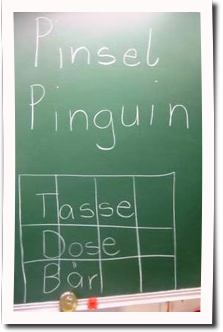 Pinsel
Pinguin
Tasse
Dose
Bär